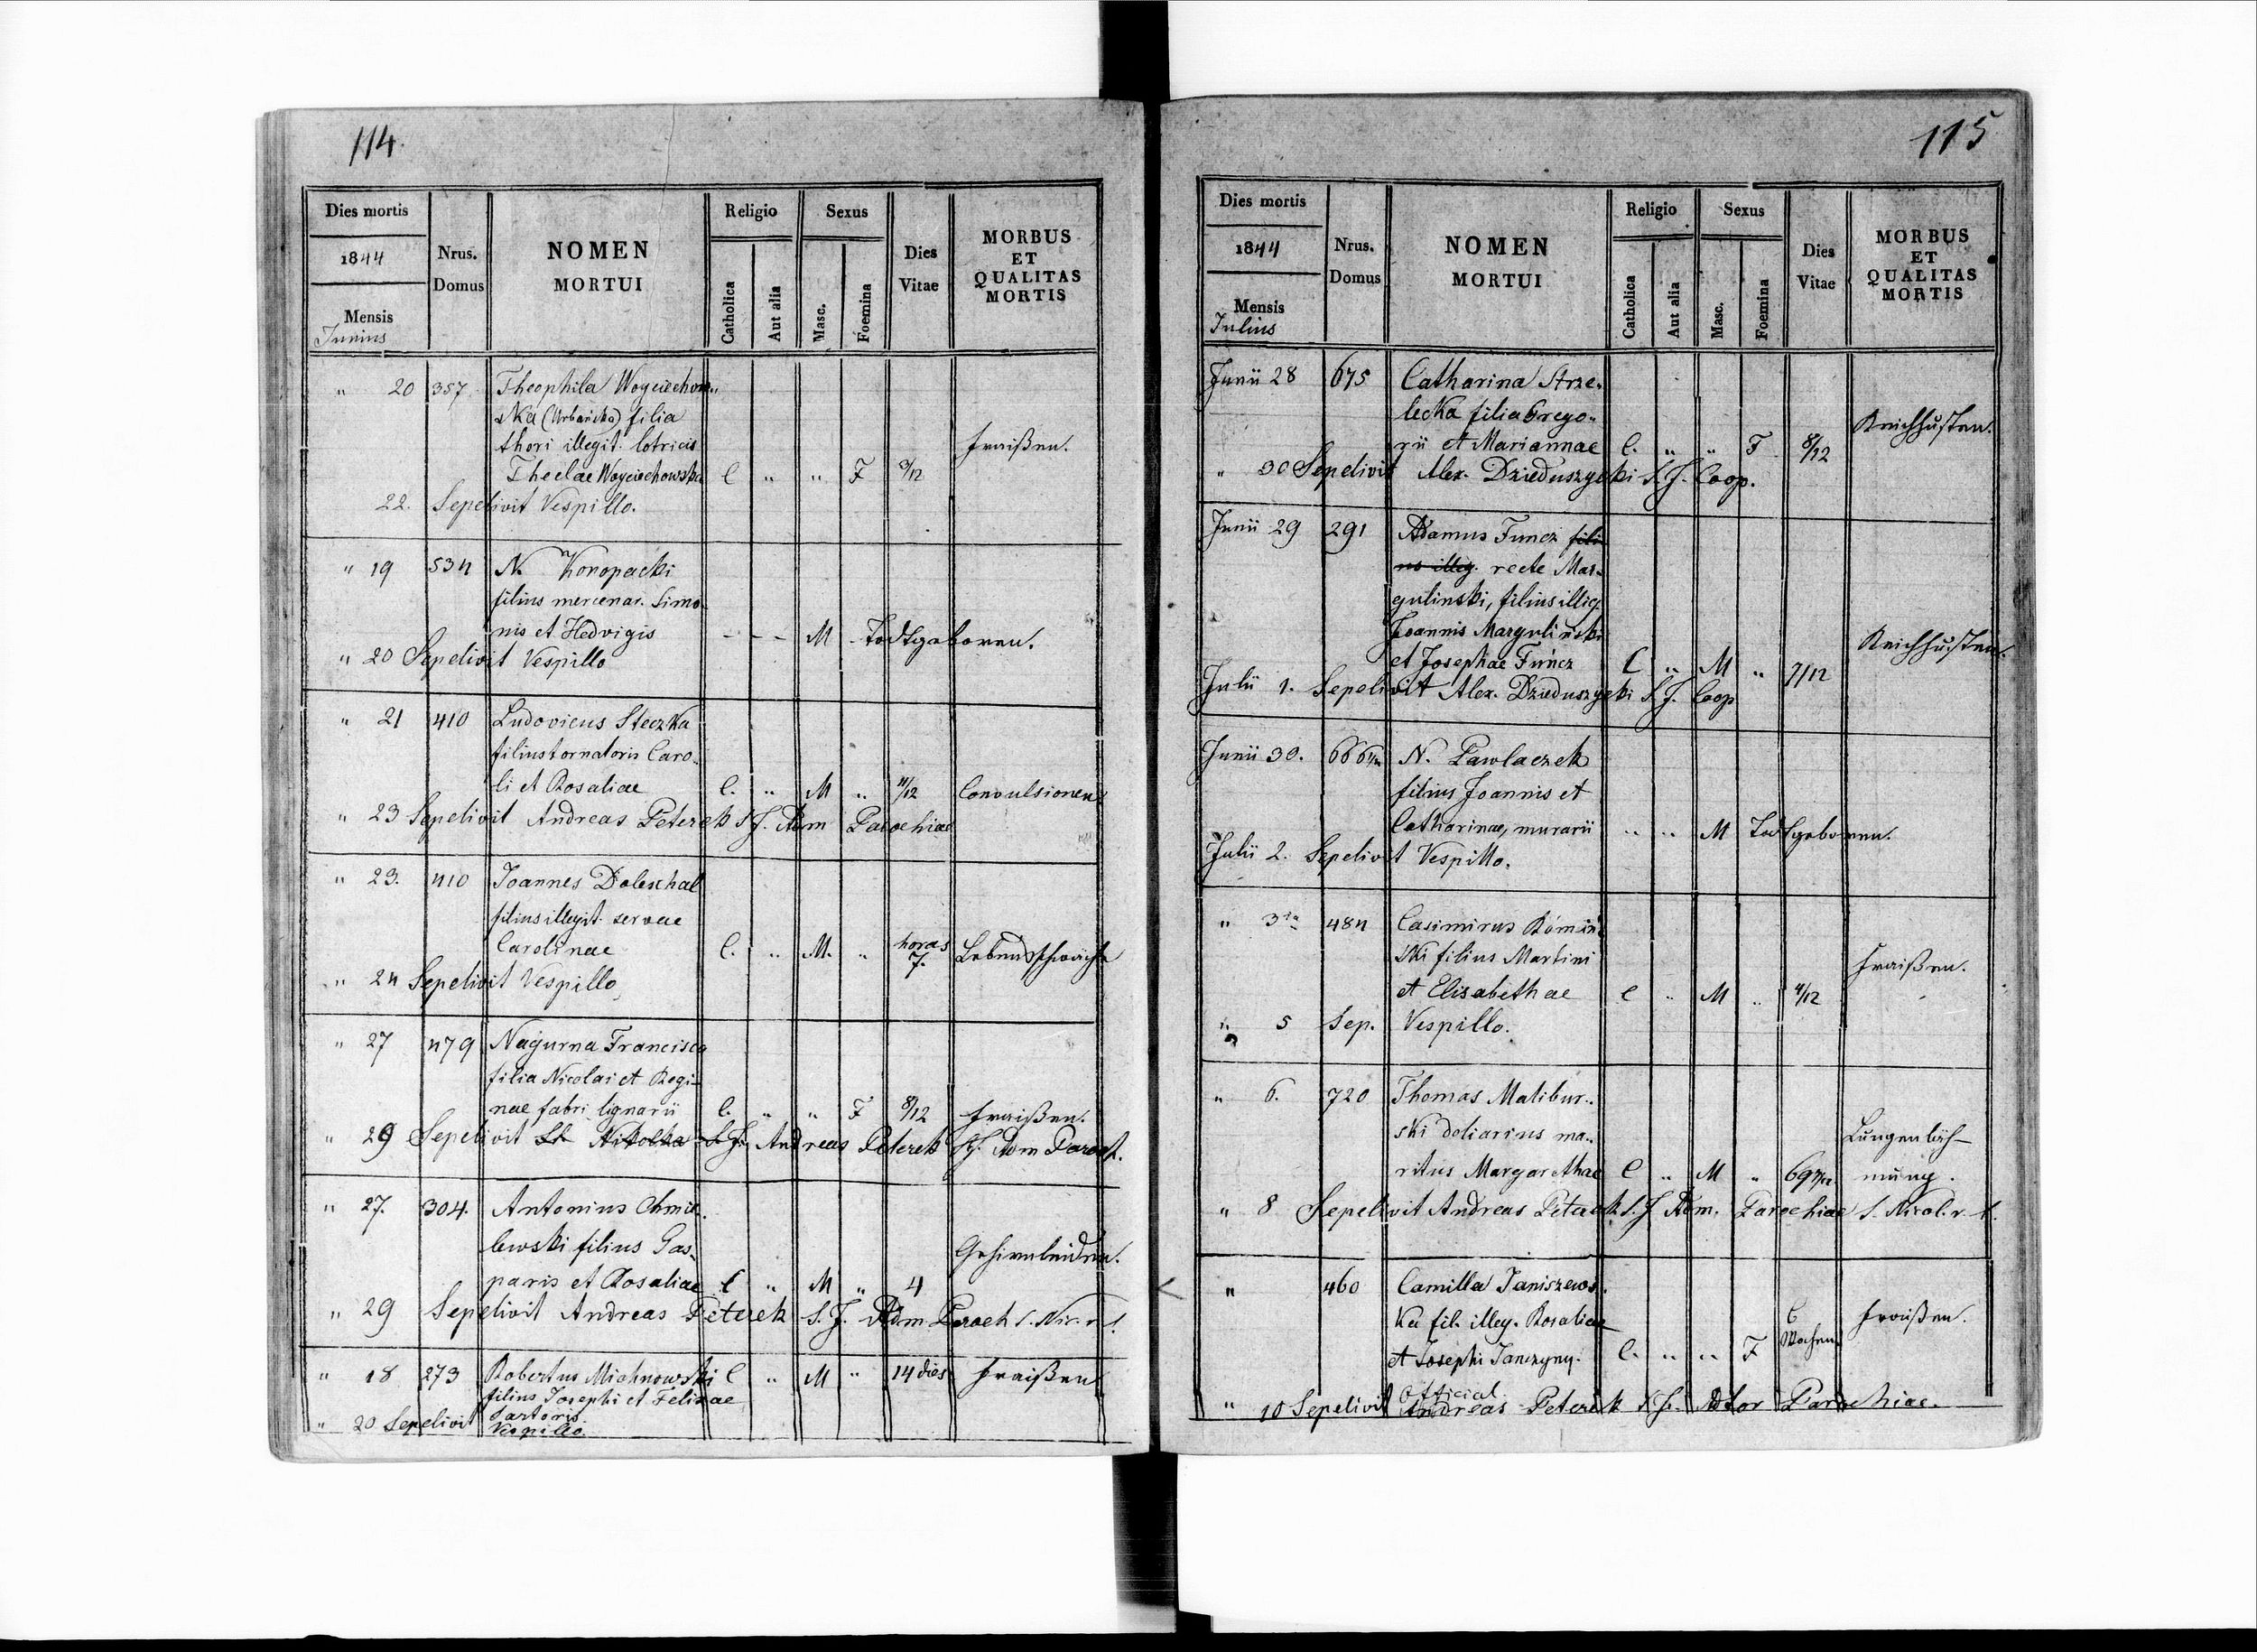 114.
Dies mortis
1844
Mensis
Junius
Nrus.
Domus
NOMEN
MORTUI
Religio
Catholica
Aut alia
Sexus
Masc.
Foemina
Dies
Vitae
MORBUS
ET
QUALITAS
MORTIS
" 20 357 Theophila Wojciechow-
ska (Urbańska) filia
thori illegit. lotricis fraißen.
Theclae Wojciechowska C " " F 3/12
22. Sepelivit Vespillo.
" 19 534 N. Konopacki
filius mercenar. Simo-
nis et Hedvigis - - - M Todtgeboren.
" 20 Sepelivit Vespillo
" 21 410 Ludovicus Steczka
filius tornatoris Caro-
li et Rosaliae C. " M " 11/12 Convulsionen
" 23 Sepelivit Andreas Peterek S. J. Adm Parochiae
" 23. 410 Joannes Doleschal
filius illegit. servae
Carolinae C. " M. " horas 7. Lebensschwäche
" 24 Sepelivit Vespillo
" 27 479 Nagurna Francisca
filia Nicolai et Regi-
nae fabri lignarii C. " " F 8/12 fraißen.
" 29 Sepelivit S. J. Andreas Peterek S. J. Adm Paroch.
" 27. 304. Antonius Chmie-
lewski filius Gas- Gehirnleiden.
paris et Rosaliae C " M " 4
" 29 Sepelivit Andreas Peterek S. J. Adm Paroch S. Nic. r. l.
" 18 273 Robertus Michnowski C " M " 14 dies fraißen
filius Josephi et Felixae
Sartoris.
" 20 Sepelivit Vespillo.
115
Dies mortis
1844
Mensis
Julius
Nrus.
Domus
NOMEN
MORTUI
Religio
Catholica
Aut alia
Sexus
Masc.
Foemina
Dies
Vitae
MORBUS
ET
QUALITAS
MORTIS
Junii 28 675 Catharina Strze-
lecka filia Grego- Keichhusten.
rii et Mariannae C. " " F 8/12
" 30 Sepelivit Alex. Dzieduszycki S. J. Coop.
Junii 29 291 Adamus Funcz fili-
us illeg. recte Mar-
gulinski, filius illeg.
Joannis Margulinski Keichhusten.
et Josephae Funcz C " M " 7/12
Julii 1. Sepelivit Alex. Dzieduszycki S. J. Coop
Junii 30. 666 N. Pawlaczek
filius Joannis et
Catharinae, murarii " " M Todtgeboren.
Julii 2. Sepelivit Vespillo.
" 3 484 Casimirus Romin-
ski filius Martini fraißen.
et Elisabethae C " M " 4/12
" 5 Sep. Vespillo.
" 6. 720 Thomas Malibur-
ski doliarius ma- Lungenläh-
ritus Margarethae C " M " 69 mung.
" 8 Sepelivit Andreas Peterek S. J Adm. Parochiae S. Nicol. r. l.
" 460 Camilla Janiszews-
ka fil. illeg. Rosaliae 6 fraißen.
et Josephi Janczyny. C. " " F Wochen
" 10 Sepelivit Official Andreas Peterek S. J. Adtor Parochiae.